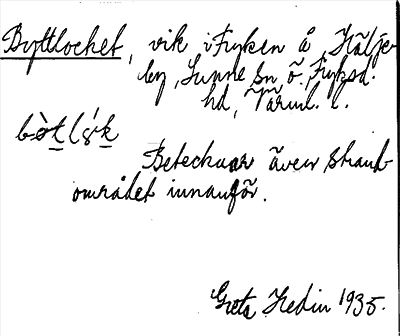 Byttlocket, vik i Fryken å Hälje-
by, Sunne sn Ö. Fryksd.
hd, Värml. l.
bòtlók
Betecknar även strand-
området innanför.
Greta Hedin 1935.